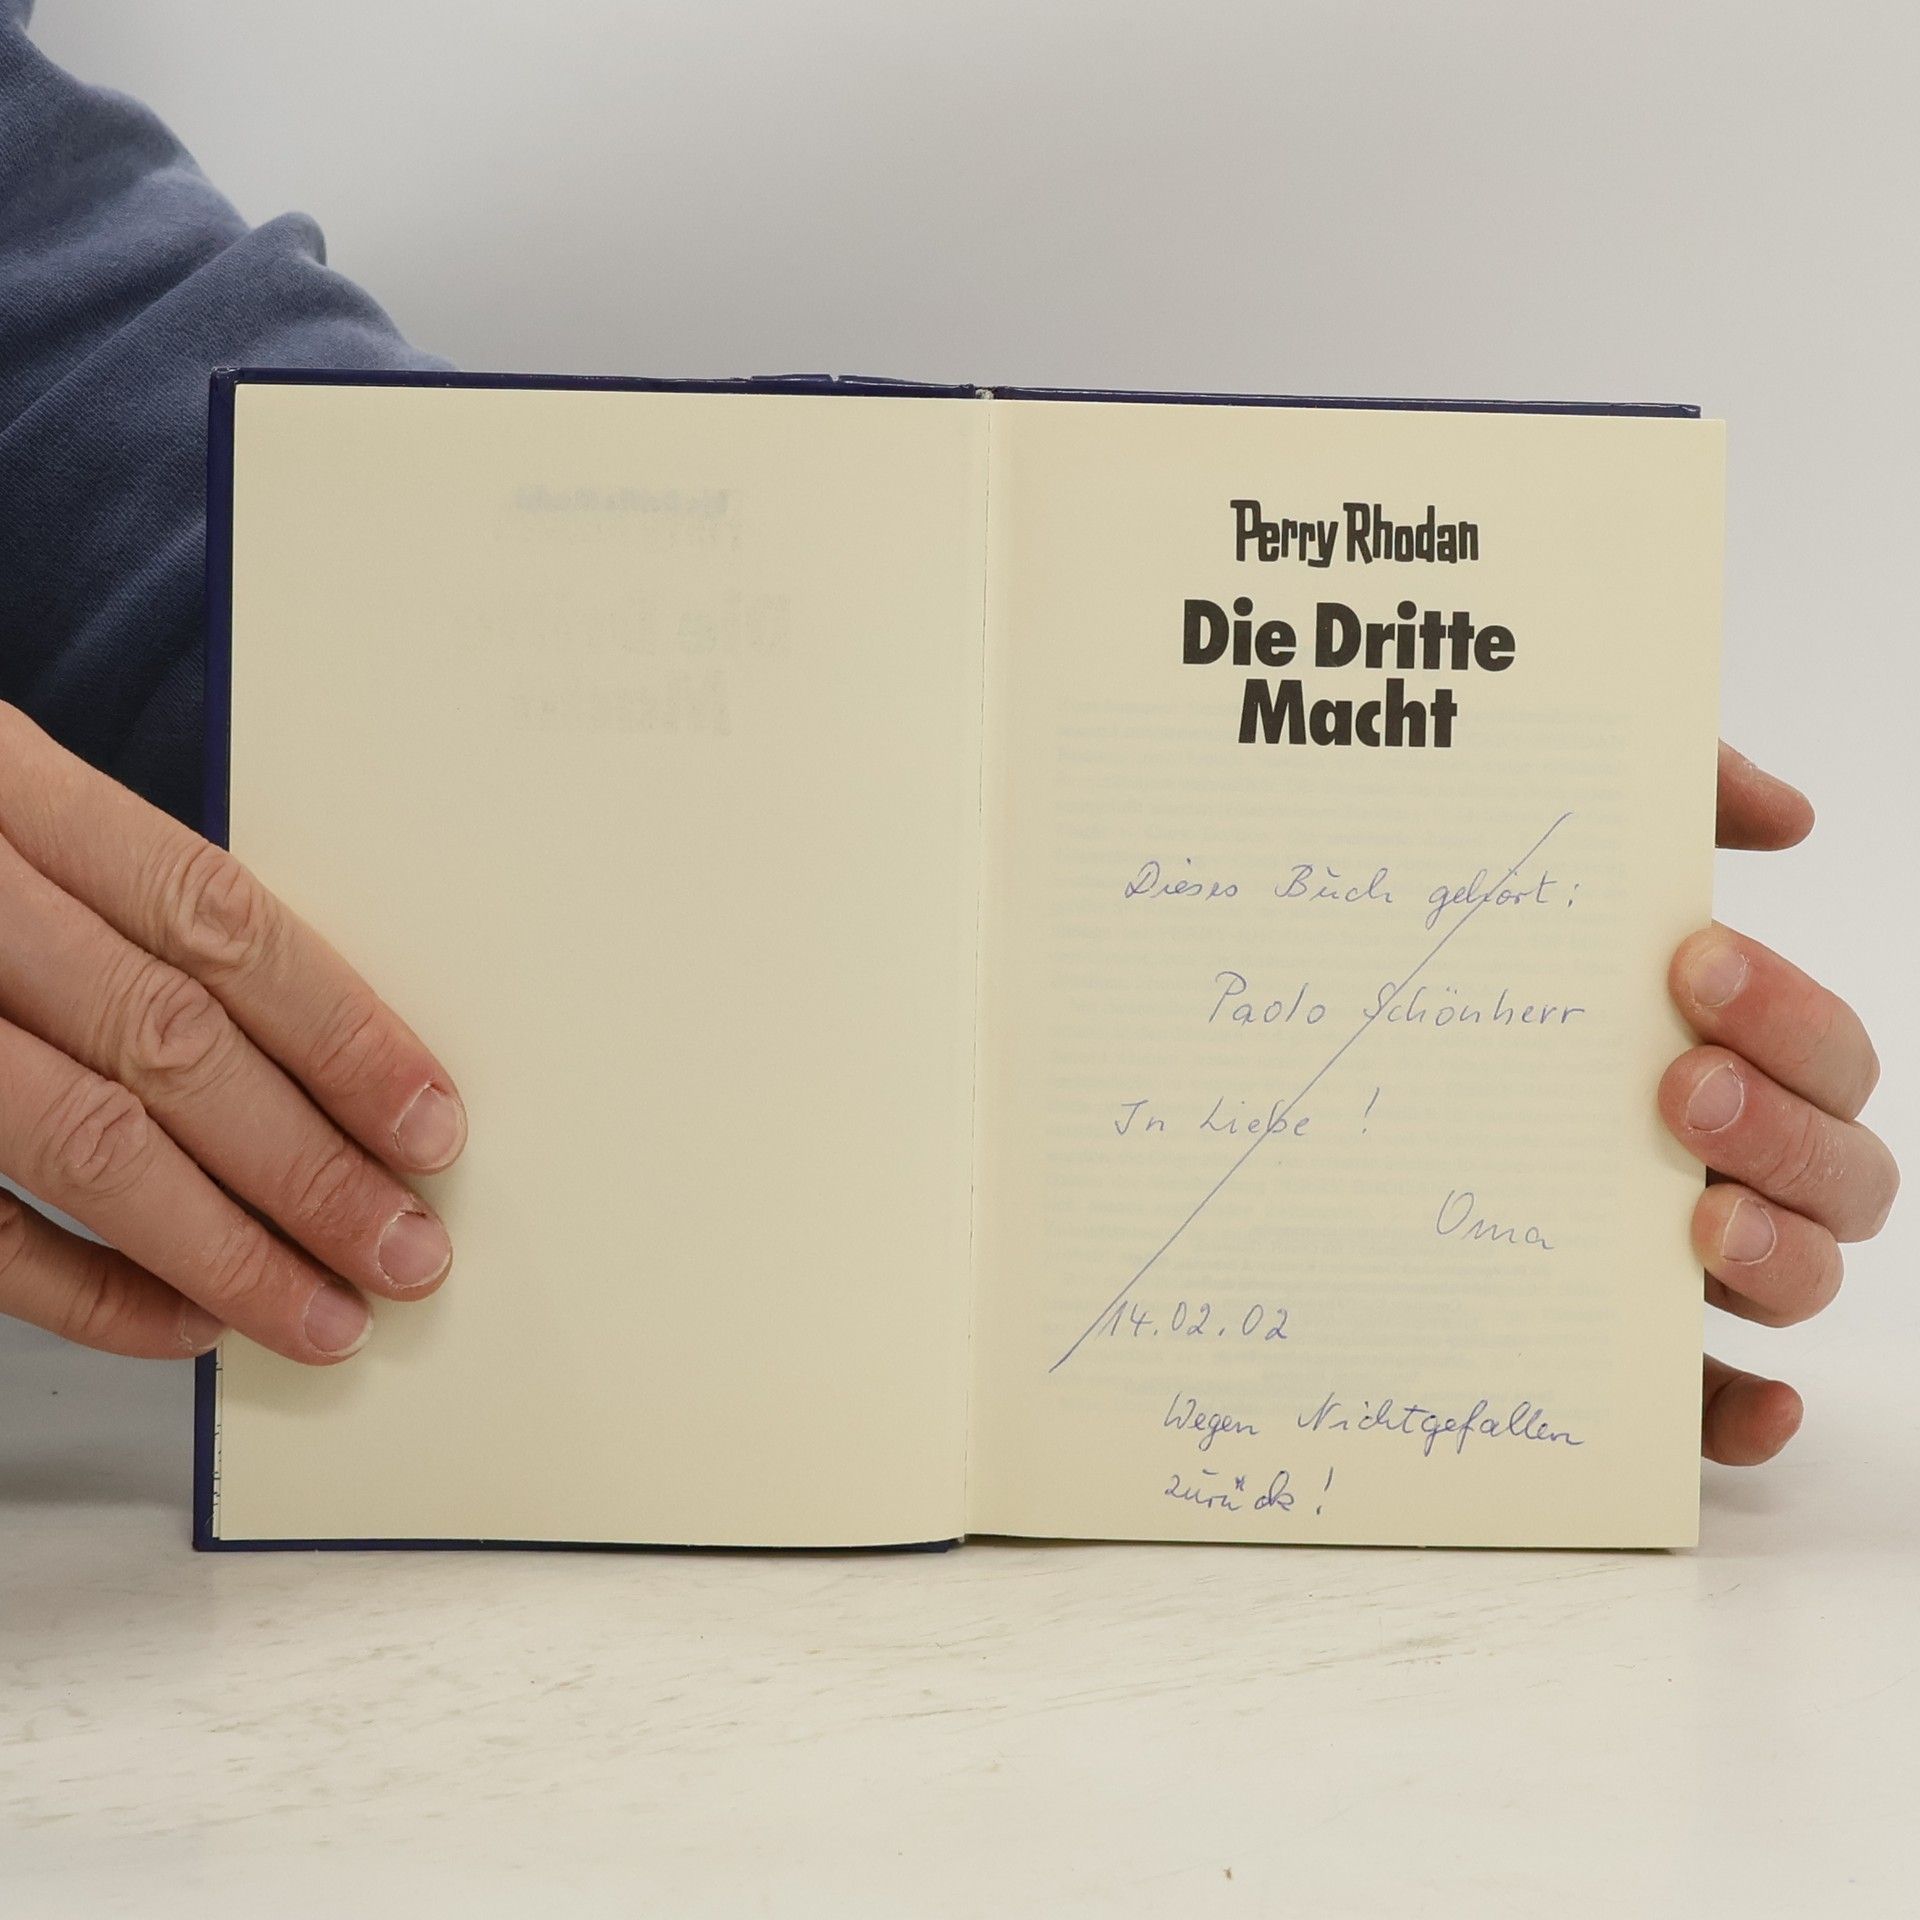 Perry Rhodan
Die Dritte
Macht
Dieses Buch gehört:
Paolo Schönherr
In Liebe !
Oma
14.02.02
Wegen Nichtgefallen
zurück!